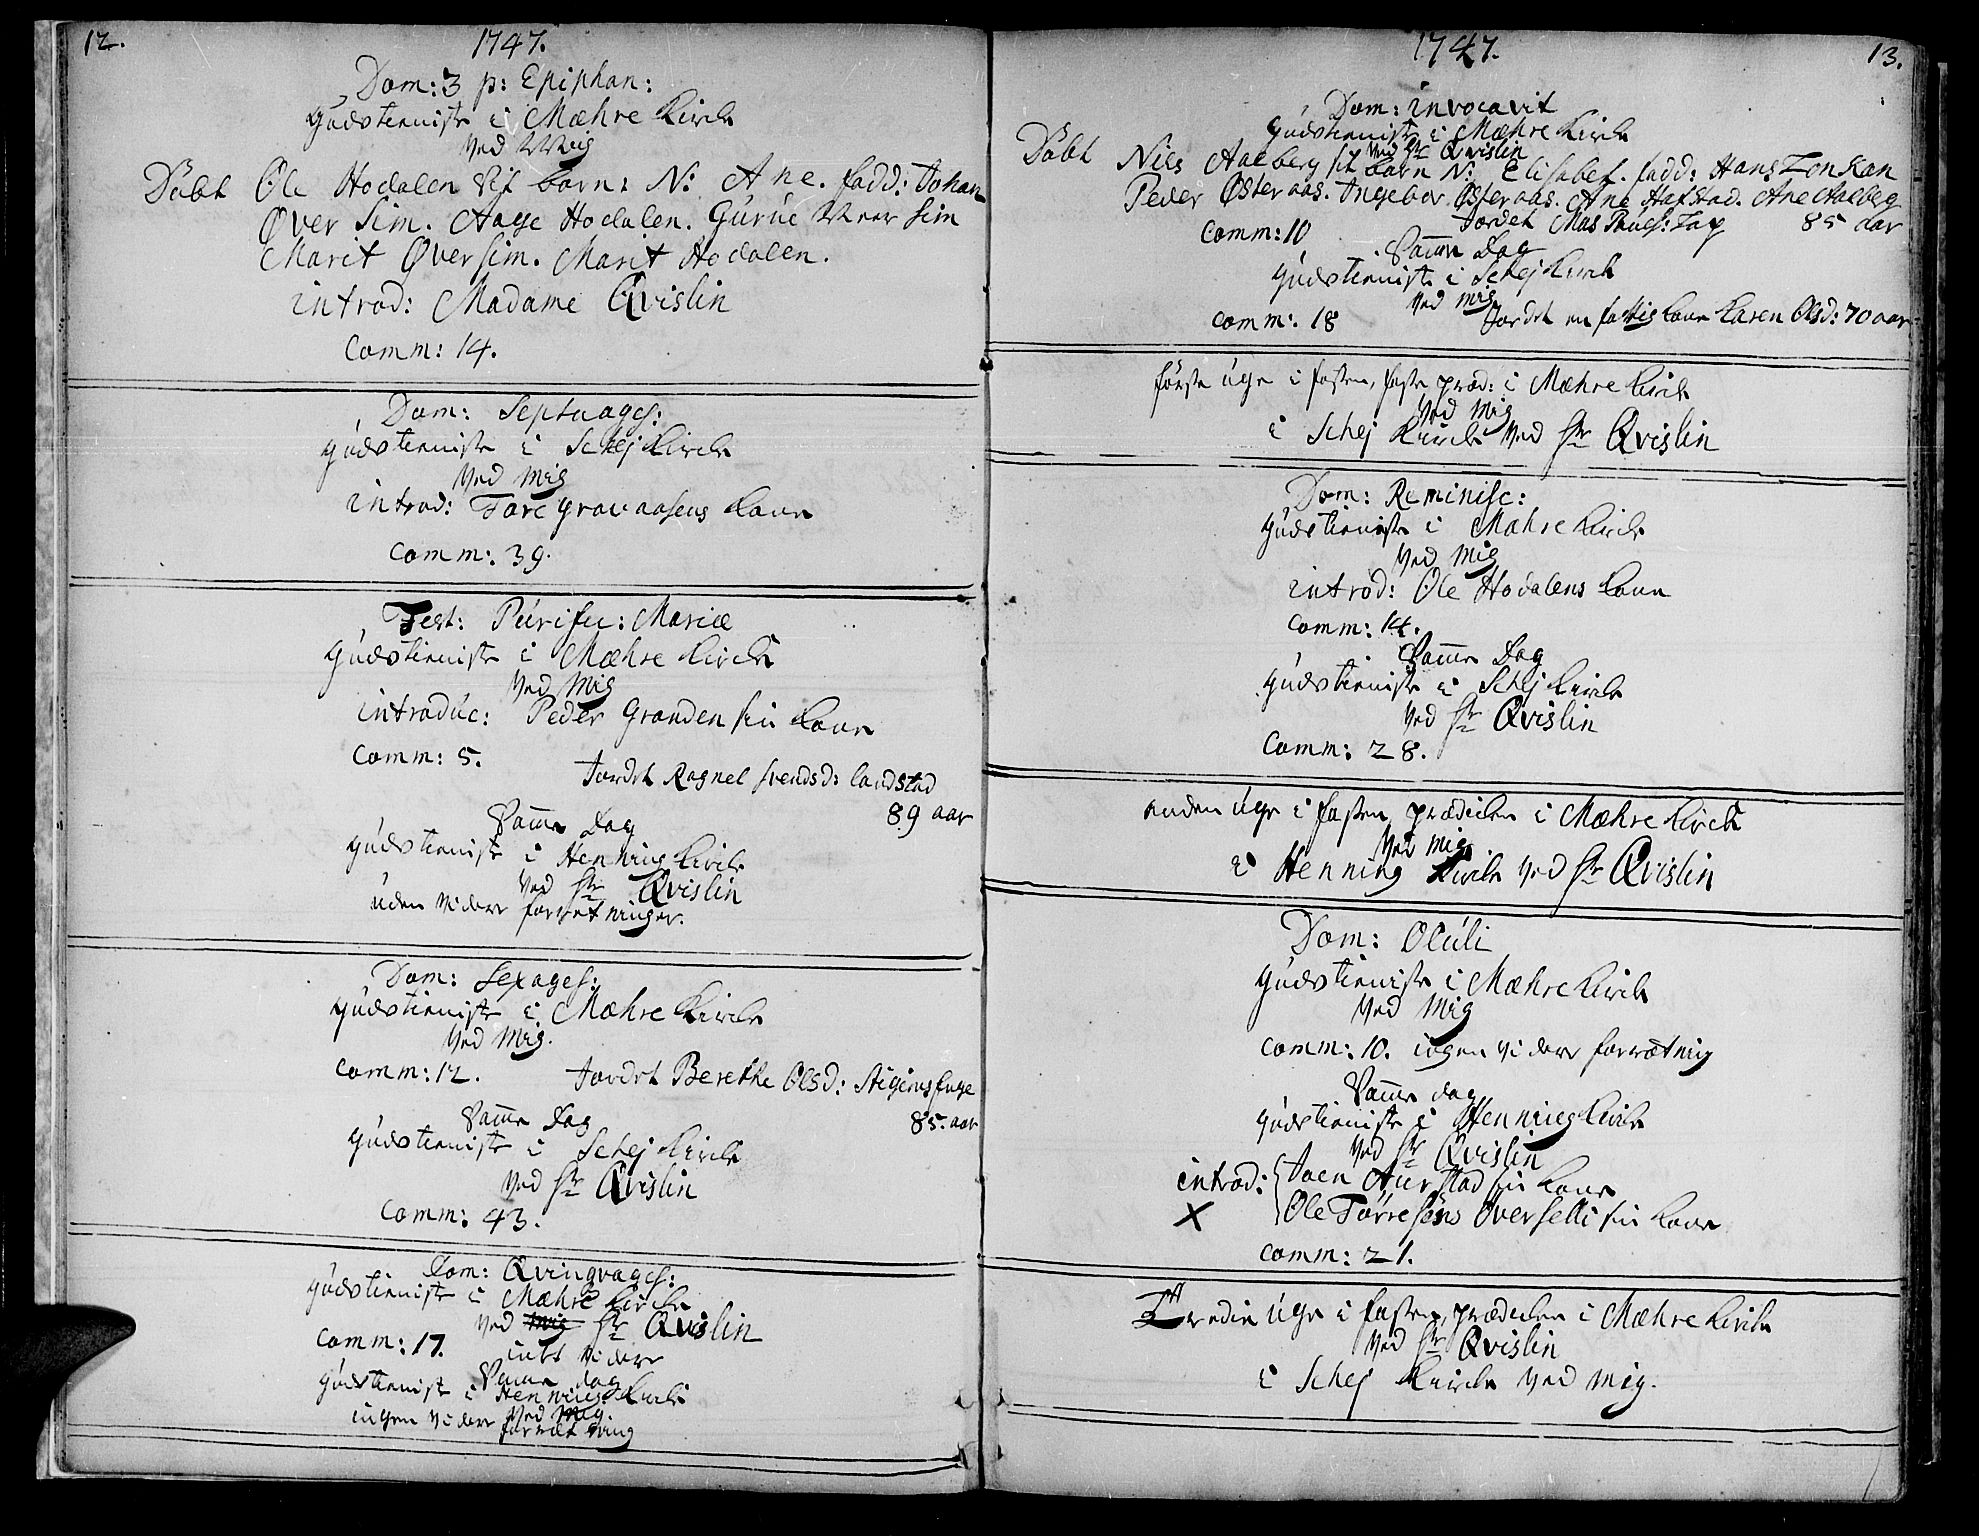 12.
1747.
Dom: 3 p: Epiphan:
Gudstieniste i Mæhre Kircke
Ved Mig
Døbt Ole Hodalen Sit barn: N: Ane. fadd: Johan
Øver Sim. Aage Hodalen. Gurue Neer Sim
Marit Øver Sim. Marit Hodalen.
introd: Madame Qvislin
Comm: 14.
Dom: Septuages:
Gudstieniste i Schej Kircke
Ved Mig
introd: Tore Gravaasens Kone
Comm: 39.
Fest: Purific: Mariæ
Gudstieniste i Mæhre Kircke
Ved Mig
introduc: Peder Granden sin Kone
Comm: 5.
Jordet Ragnel Svendsd: landstad
89 aar
Samme Dag
Gudstieniste i Henning Kircke
Ved Hr Qvislin
uden videre forretninger.
Dom: Sexages:
Gudstieniste i Mæhre Kircke
Ved Mig.
Comm: 12. Jordet Berethe Olsd:
85. aar
Samme Dag
Gudstieniste i Schej Kircke
Ved Hr Qvislin
Comm: 43.
Dom: Qvinqvages:
Gudstieniste i Mæhre Kircke
Ved mig Hr Qvislin
Comm: 17. intet videre
Samme dag
Gudstieniste i Henning Kircke
Ved Mig.
ingen videre forrætning
1747.
13.
Dom: invocavit
Gudstieniste i Mæhre Kircke
Ved Hr Qvislin
Døbt Niels Aalberg sit barn N: Elisabet. fadd: Hans
Peder Østeraas. Ingebor Østeraas. Ane Hafstad. Ane Aalberg
Comm: 10 Jordet 85 aar
Samme Dag
Gudstieniste i Schej Kircke
Ved mig
Comm: 18 Jordet en fattig Kone Karen Olsd: 70 aar
første uge i fasten, faste præd: i Mæhre Kircke
Ved Mig
i Schej Kircke Ved Hr Qvislin
Dom: Reminisc:
Gudstieniste i Mæhre Kircke
Ved Mig
introd: Ole Hodalens Kone
Comm: 14.
Samme Dag
Gudstieniste i Schej Kircke
Ved Hr Qvislin
Comm: 28.
anden uge i fasten prædicken i Mæhre Kircke
Ved mig
i Henning Kircke Ved Hr Qvislin
Dom: Oculi
Gudstieniste i Mæhre Kircke
Ved Mig
Comm: 10. ingen videre forrætning
Samme dag
Gudstieniste i Henning Kircke
Ved Hr Qvislin
introd: Joen Aurstad sin Kone
X Ole Tørresøns Overselli sin Kone
Comm: 21.
Tredie uge i fasten, prædicken i Mæhre Kircke
Ved Hr Qvislin
i Schej Kircke Ved mig.